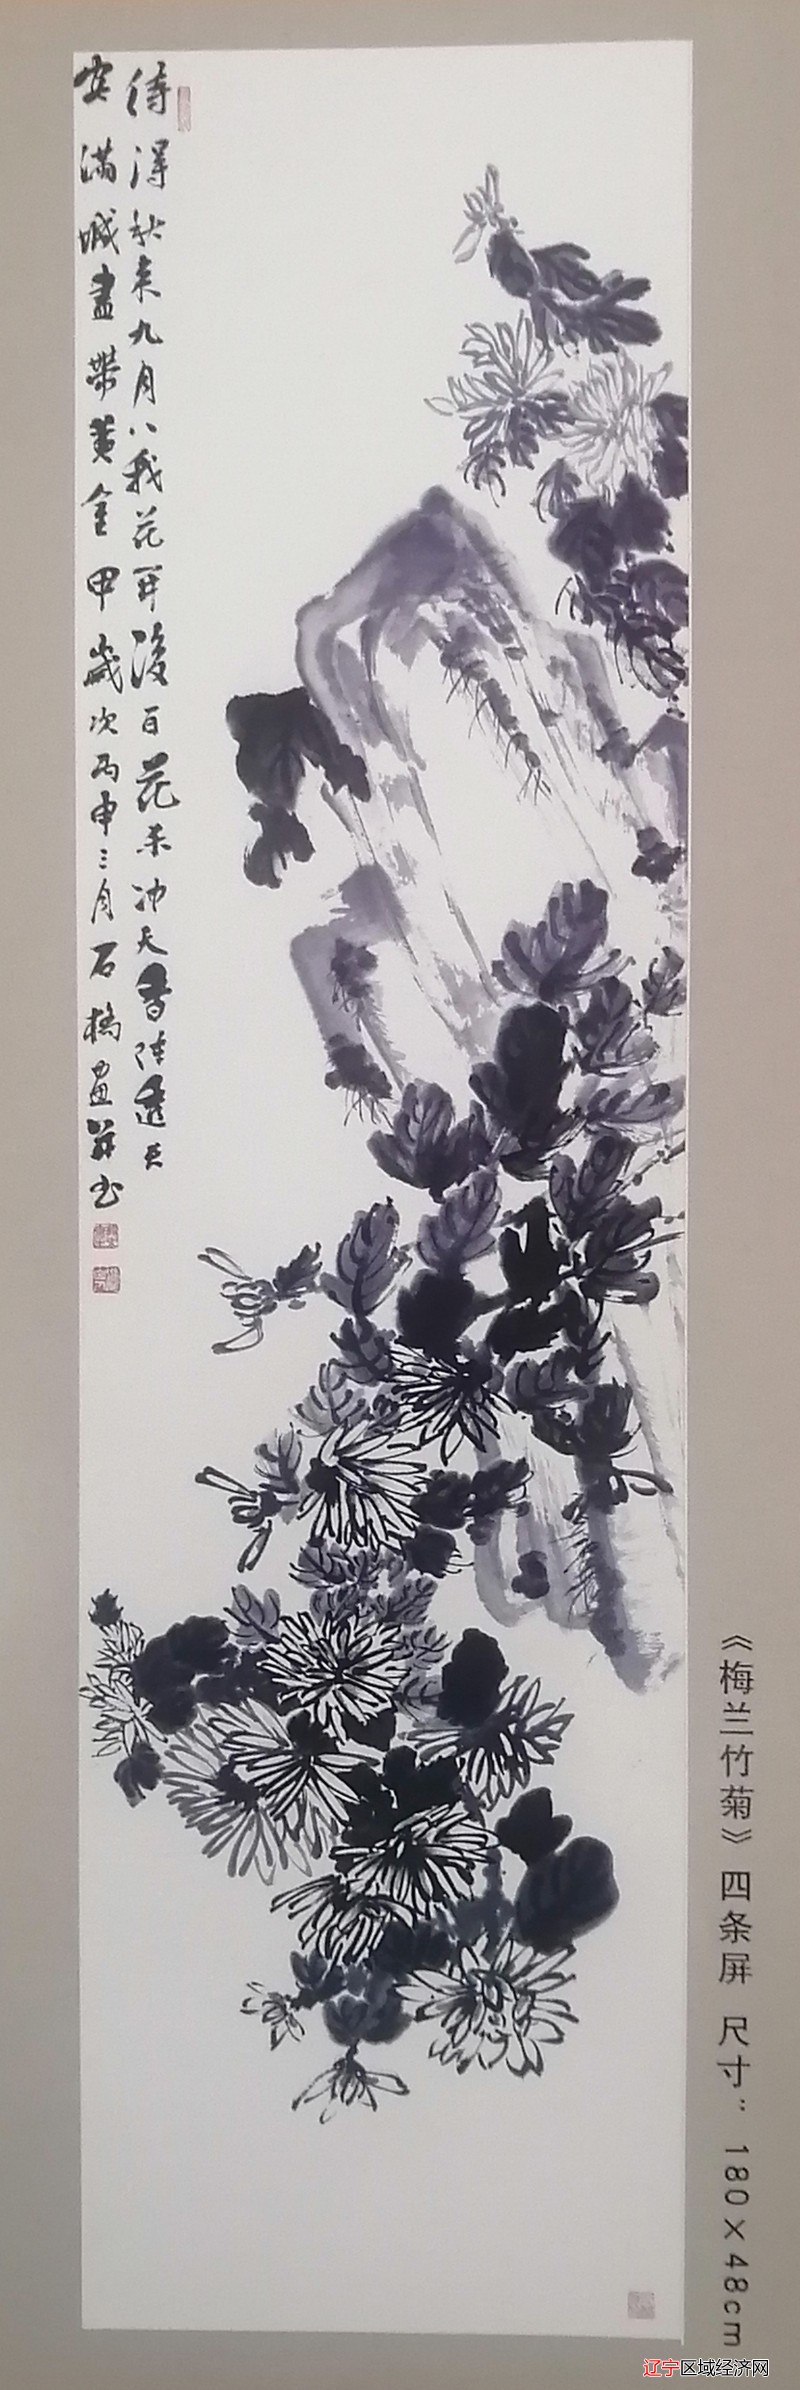 待得秋来九月八我花开后百花杀冲天香阵透长
安满城尽带黄金甲岁次丙申三月石桥画并书
《梅兰竹菊》四条屏 尺寸：180×48cm
辽宁区域经济网